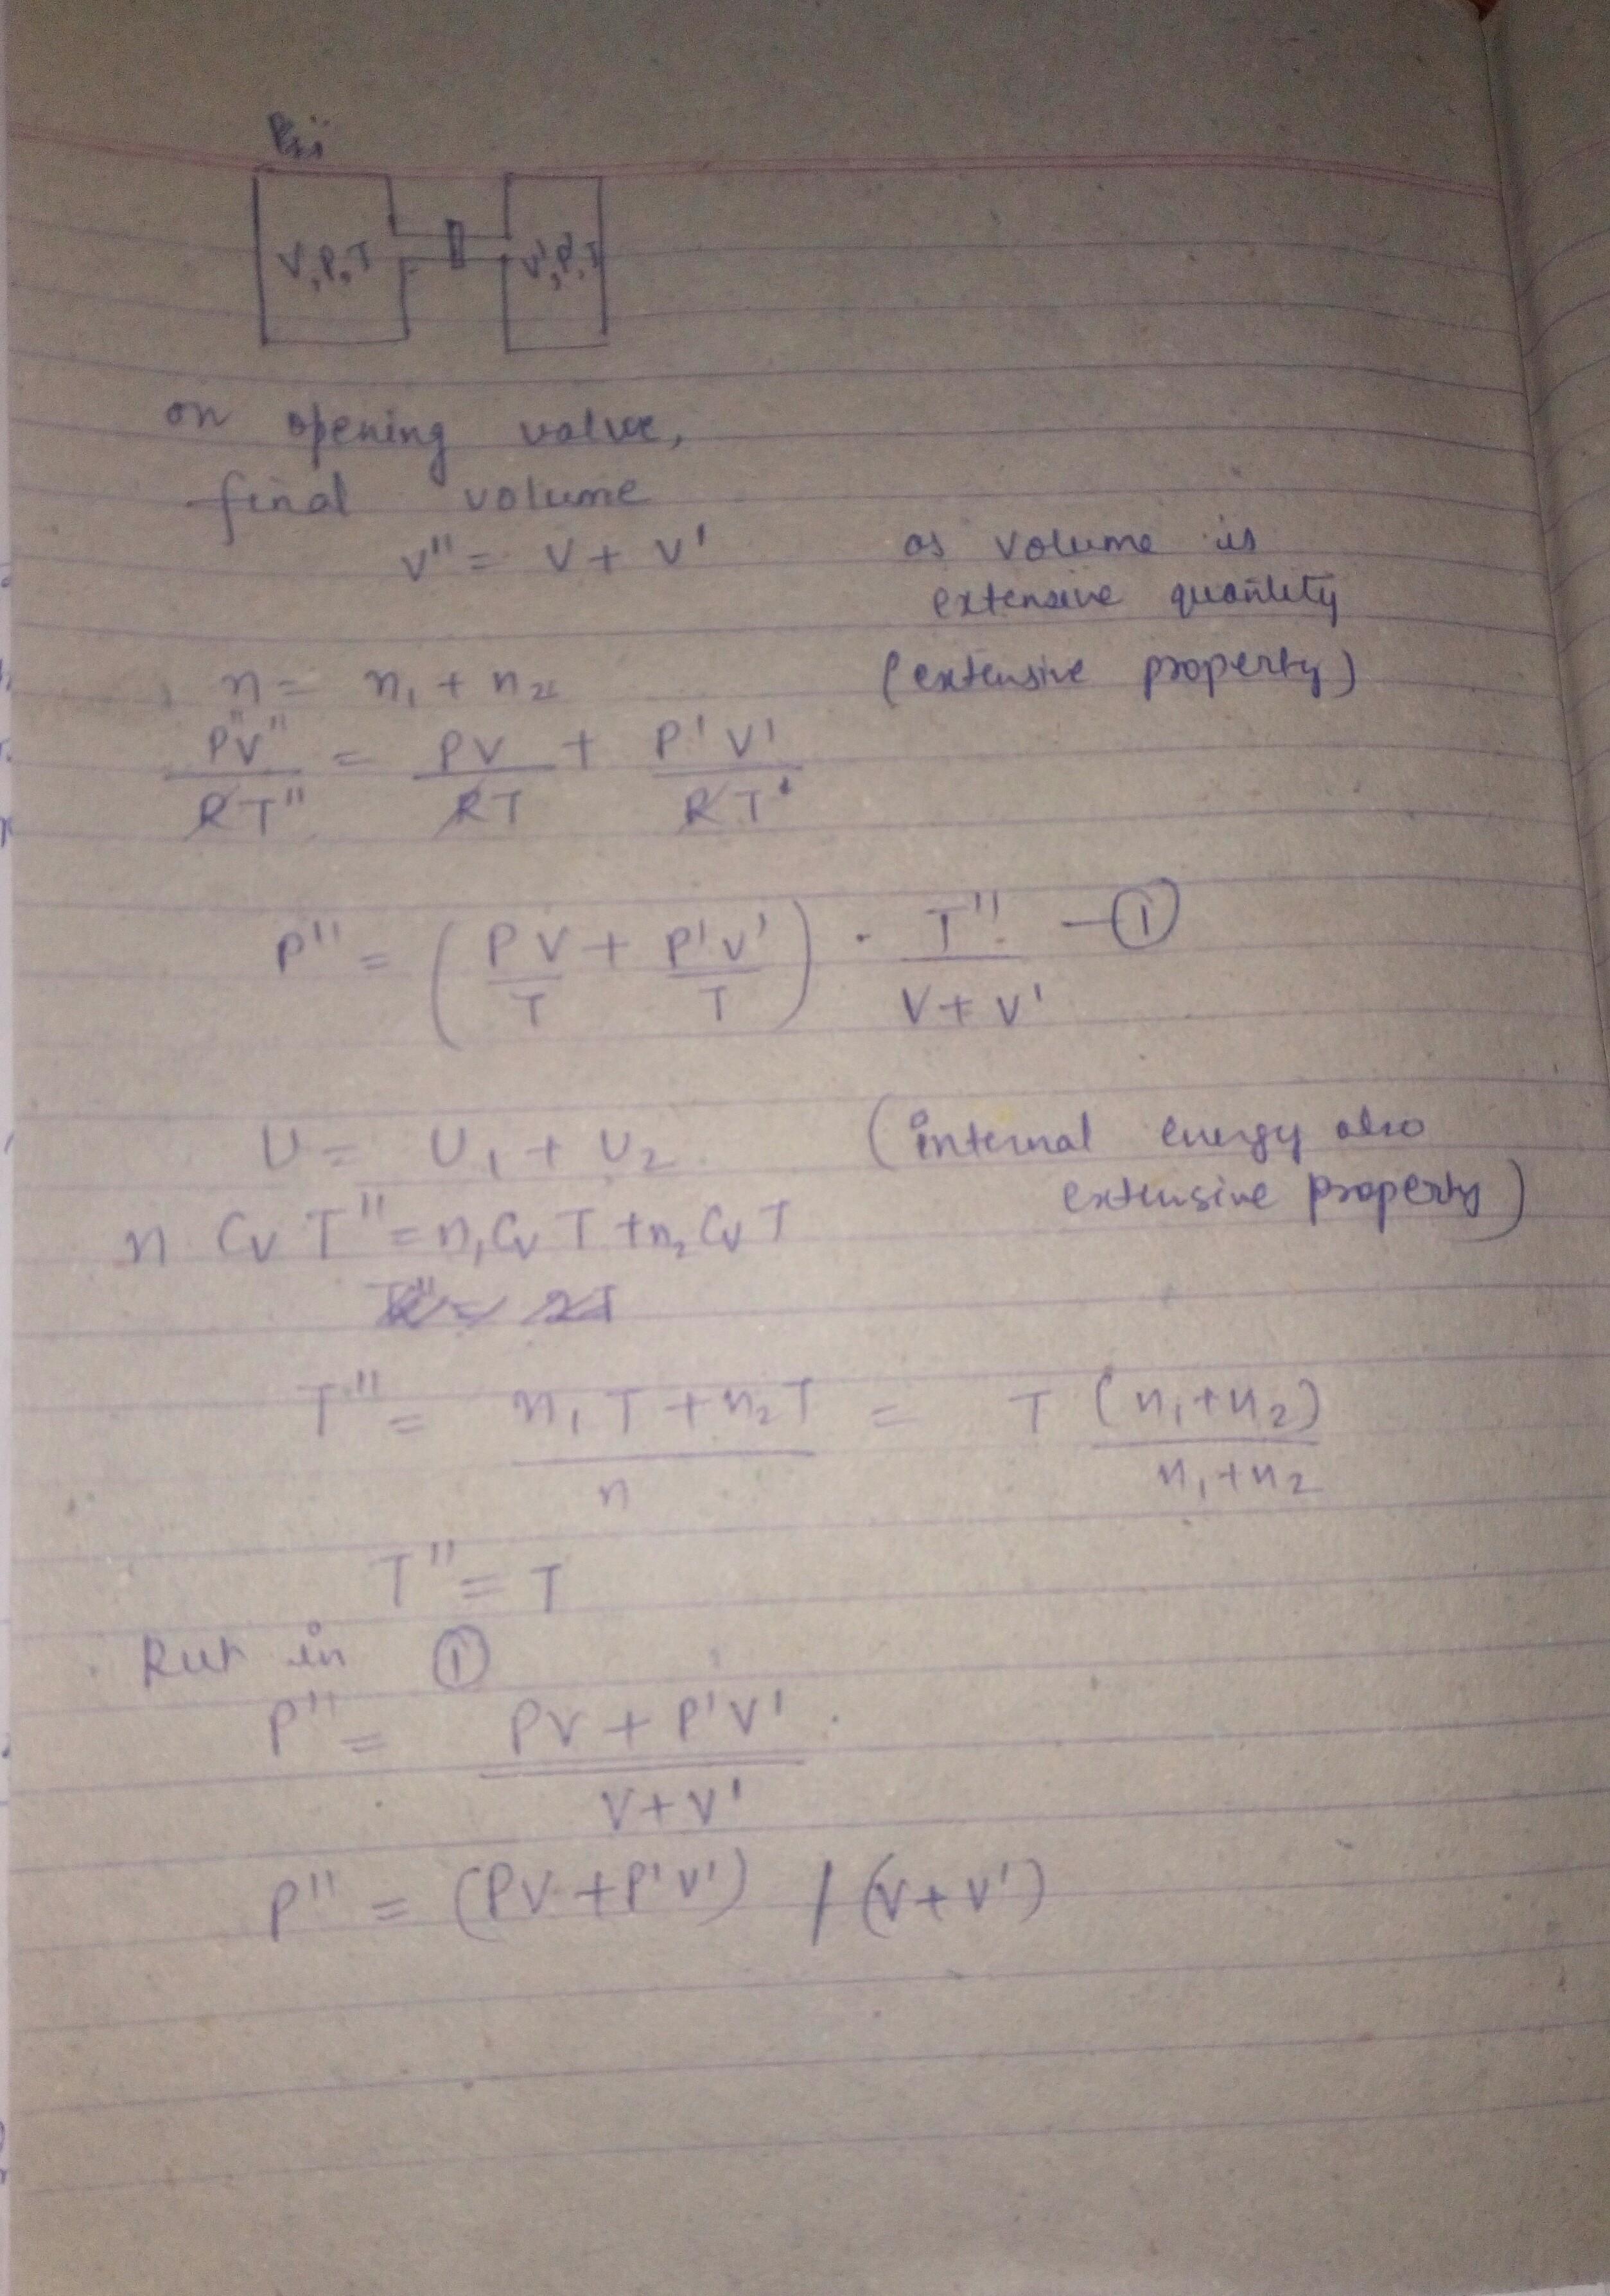 V, P, T V', P', T
on opening valve,
final volume
V'' = V + V' as volume is
extensive quantity
(extensive property)
n = n₁ + n₂
P''V''/RT'' = PV/RT + P'V'/RT
P'' = (PV/T + P'V'/T) · T''/V + V' — ①
U = U₁ + U₂ (internal energy also
extensive property)
n Cv T'' = n₁ Cv T + n₂ Cv T
T'' = n₁T + n₂T/n = T (n₁ + n₂)/n₁ + n₂
T'' = T
Put in ①
P'' = PV + P'V'/V + V'
P'' = (PV + P'V') / (V + V')